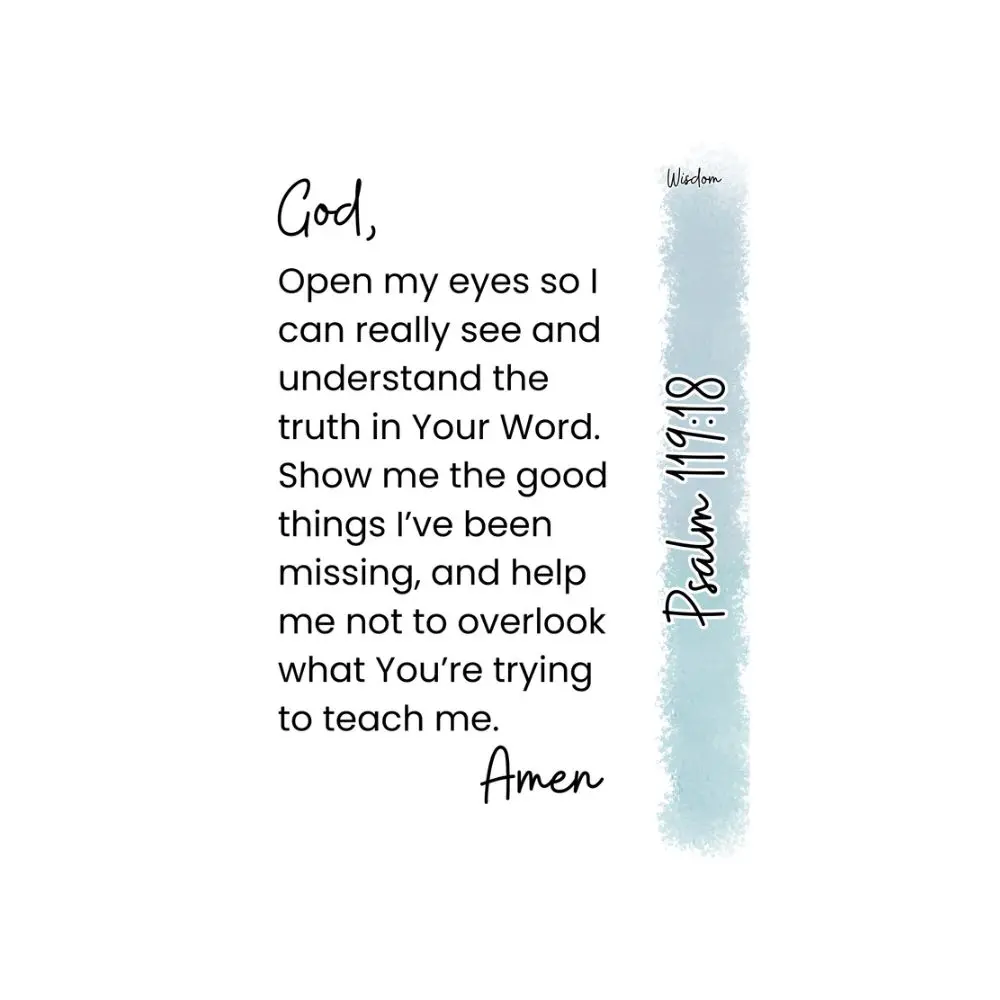 God,
Open my eyes so I
can really see and
understand the
truth in Your Word.
Show me the good
things I’ve been
missing, and help
me not to overlook
what You’re trying
to teach me.
Amen
Wisdom
Psalm 119:18